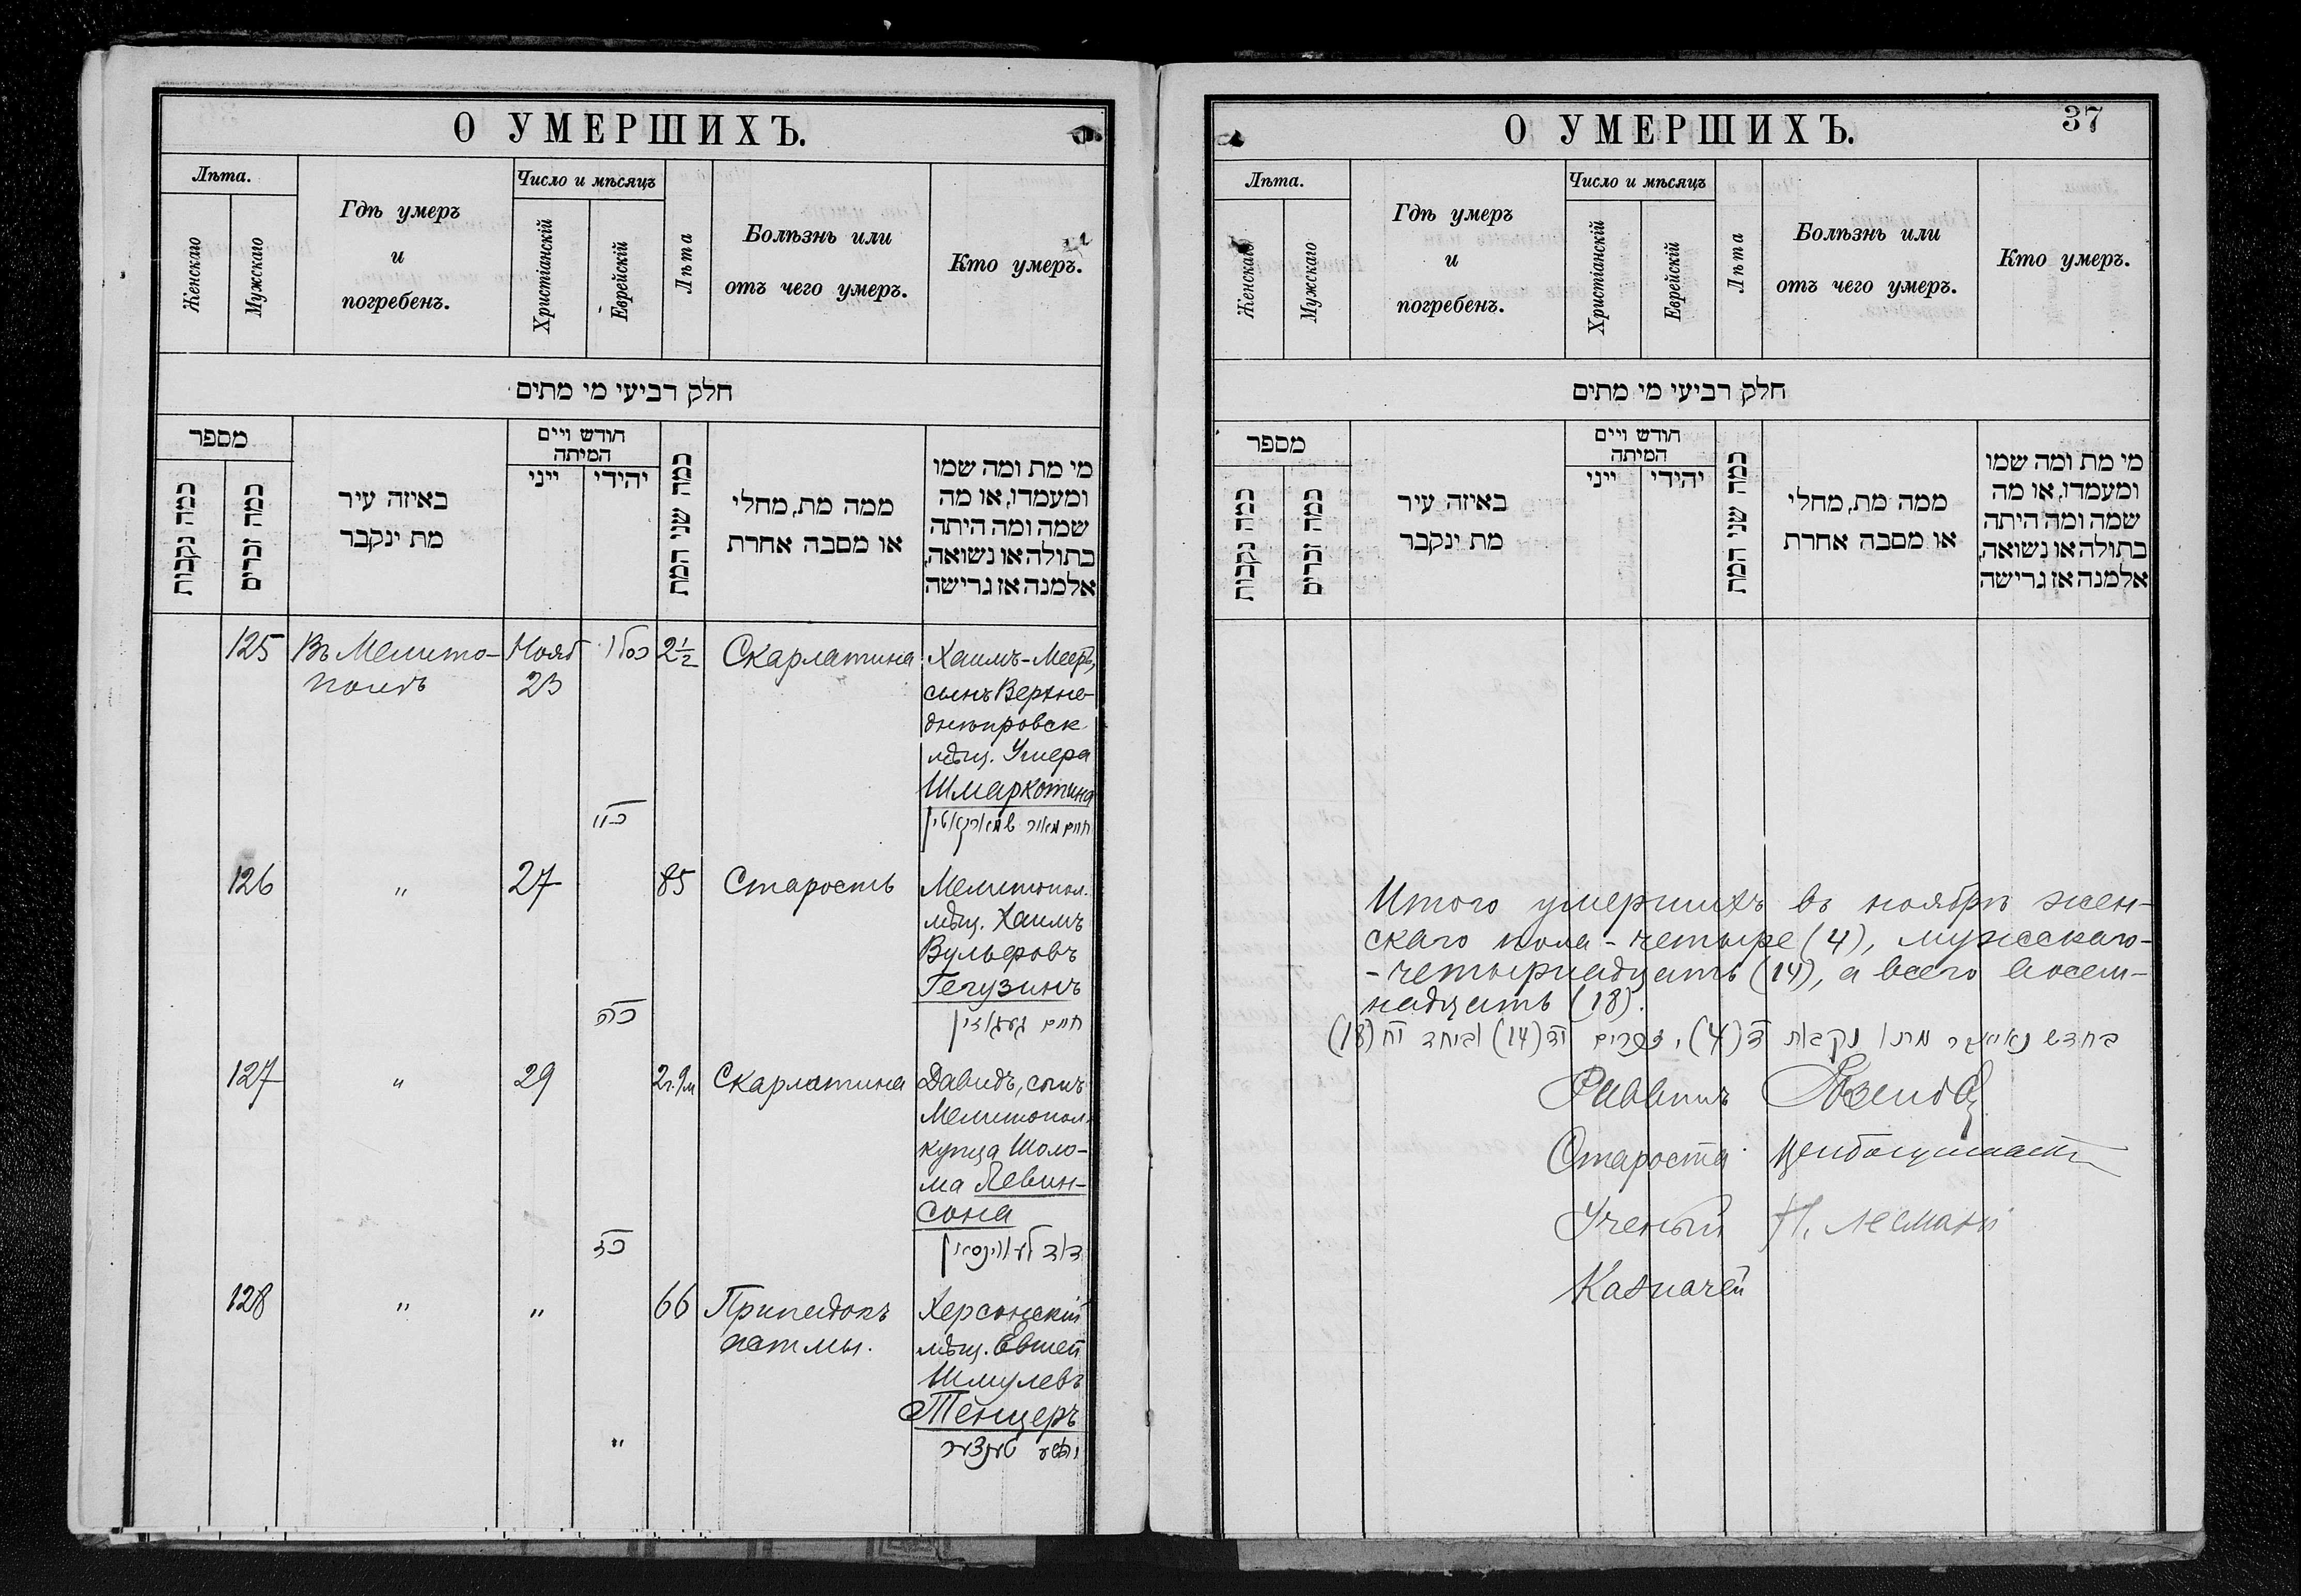 О УМЕРШИХЪ.
Лѣта.
Женскаго
Мужскаго
Гдѣ умеръ
и
погребенъ.
Число и мѣсяцъ
Христіанскій
Еврейскій
Лѣта
Болѣзнь или
отъ чего умеръ.
Кто умеръ.
חלק רביעי מי מתים
מספר
כמה נקבות
כמה זכרים
באיזה עיר
מת ינקבר
חודש ויים
המיתה
ייני
יהידי
כמה שני המת
ממה מת, מחלי
או מסבה אחרת
מי מת ומה שמו
ומעמדו, או מה
שמה ומה היתה
בתולה או נשואה,
אלמנה אז גרישה
125 Въ Мелито- Нояб כסלו 2½ Скарлатина Хаимъ-Мееръ,
полѣ 23 сынъ Верхне-
днѣпровск.
мѣщ. Умера
Шмаркотина
חיים מאיר שמארקאטין
126 " 27 85 Старость Мелитопол.
мѣщ. Хаимъ
Вульфовъ
Гегузинъ
כה חיים געגוזין
127 " 29 2г.9м Скарлатина Давидъ, сынъ
Мелитопол.
купца Шоло-
ма Левин-
сона
דוד לעווינסאין
128 " " 66 Припадокъ Херсонскій
астмы. мѣщ. Евшей
Шмулевъ
Тенцеръ
" טענצער
О УМЕРШИХЪ.
37
Лѣта.
Женскаго
Мужскаго
Гдѣ умеръ
и
погребенъ.
Число и мѣсяцъ
Христіанскій
Еврейскій
Лѣта
Болѣзнь или
отъ чего умеръ.
Кто умеръ.
חלק רביעי מי מתים
מספר
כמה נקבות
כמה זכרים
באיזה עיר
מת ינקבר
חודש ויים
המיתה
ייני
יהידי
כמה שני המת
ממה מת, מחלי
או מסבה אחרת
מי מת ומה שמו
ומעמדו, או מה
שמה ומה היתה
בתולה או נשואה,
אלמנה אז גרישה
Итого умершихъ въ ноябрѣ жен-
скаго пола - четыре (4), мужескаго -
- четырнадцать (14), а всего восем-
надцать (18).
בחדש נאיאבר מתו נקבות ד (4), זכרים יד (14) וביחד יח (18)
Раввинъ
Староста
Ученый
Казначей